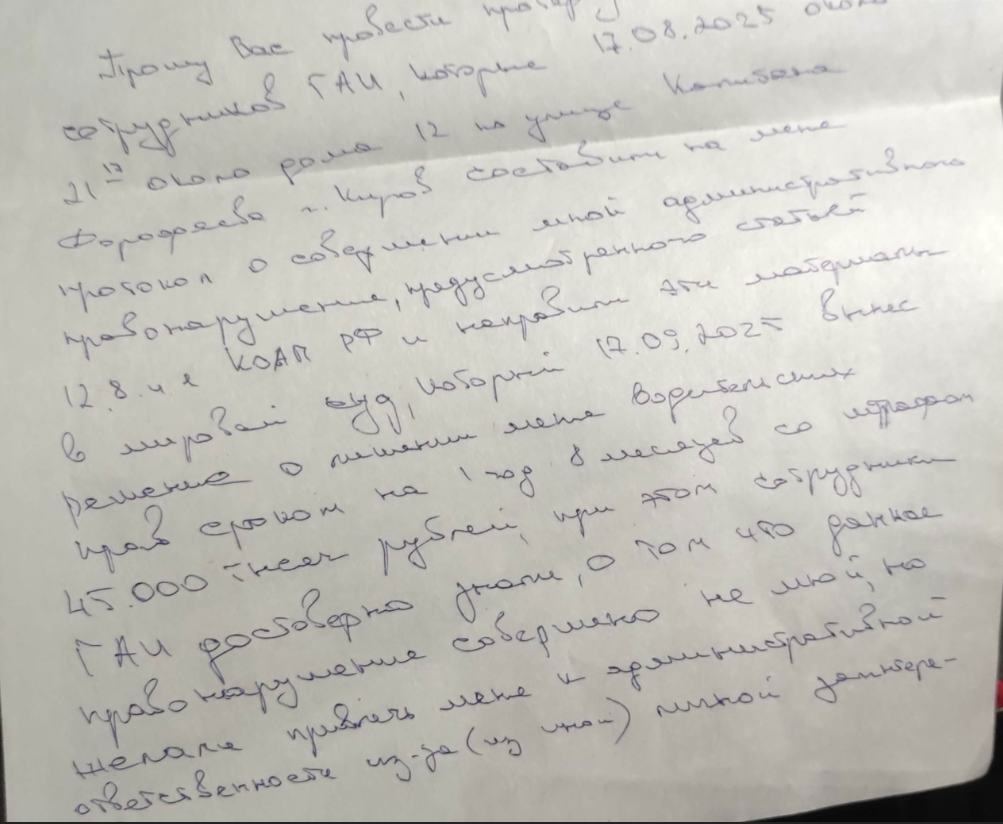 Прошу Вас провести
сотрудников ГАИ, которые 17.08.2025 около
21 17 около дома 12 по улице Капитана
Дорофеева г. Киров составили на меня
протокол о совершении мной административного
правонарушение, предусмотренного статьей
12.8. ч. КОАП РФ и направили эти материалы
в мировой суд, который 17.09.2025 вынес
решение о лишении меня водительских
прав сроком на 1 год 8 месяцев со штрафом
45.000 тысяч рублей, при этом сотрудники
ГАИ достоверно знали, о том что данное
правонарушение совершено не мной, но
желали привлечь меня к административной
ответственности из-за (из иной) личной заинтере-